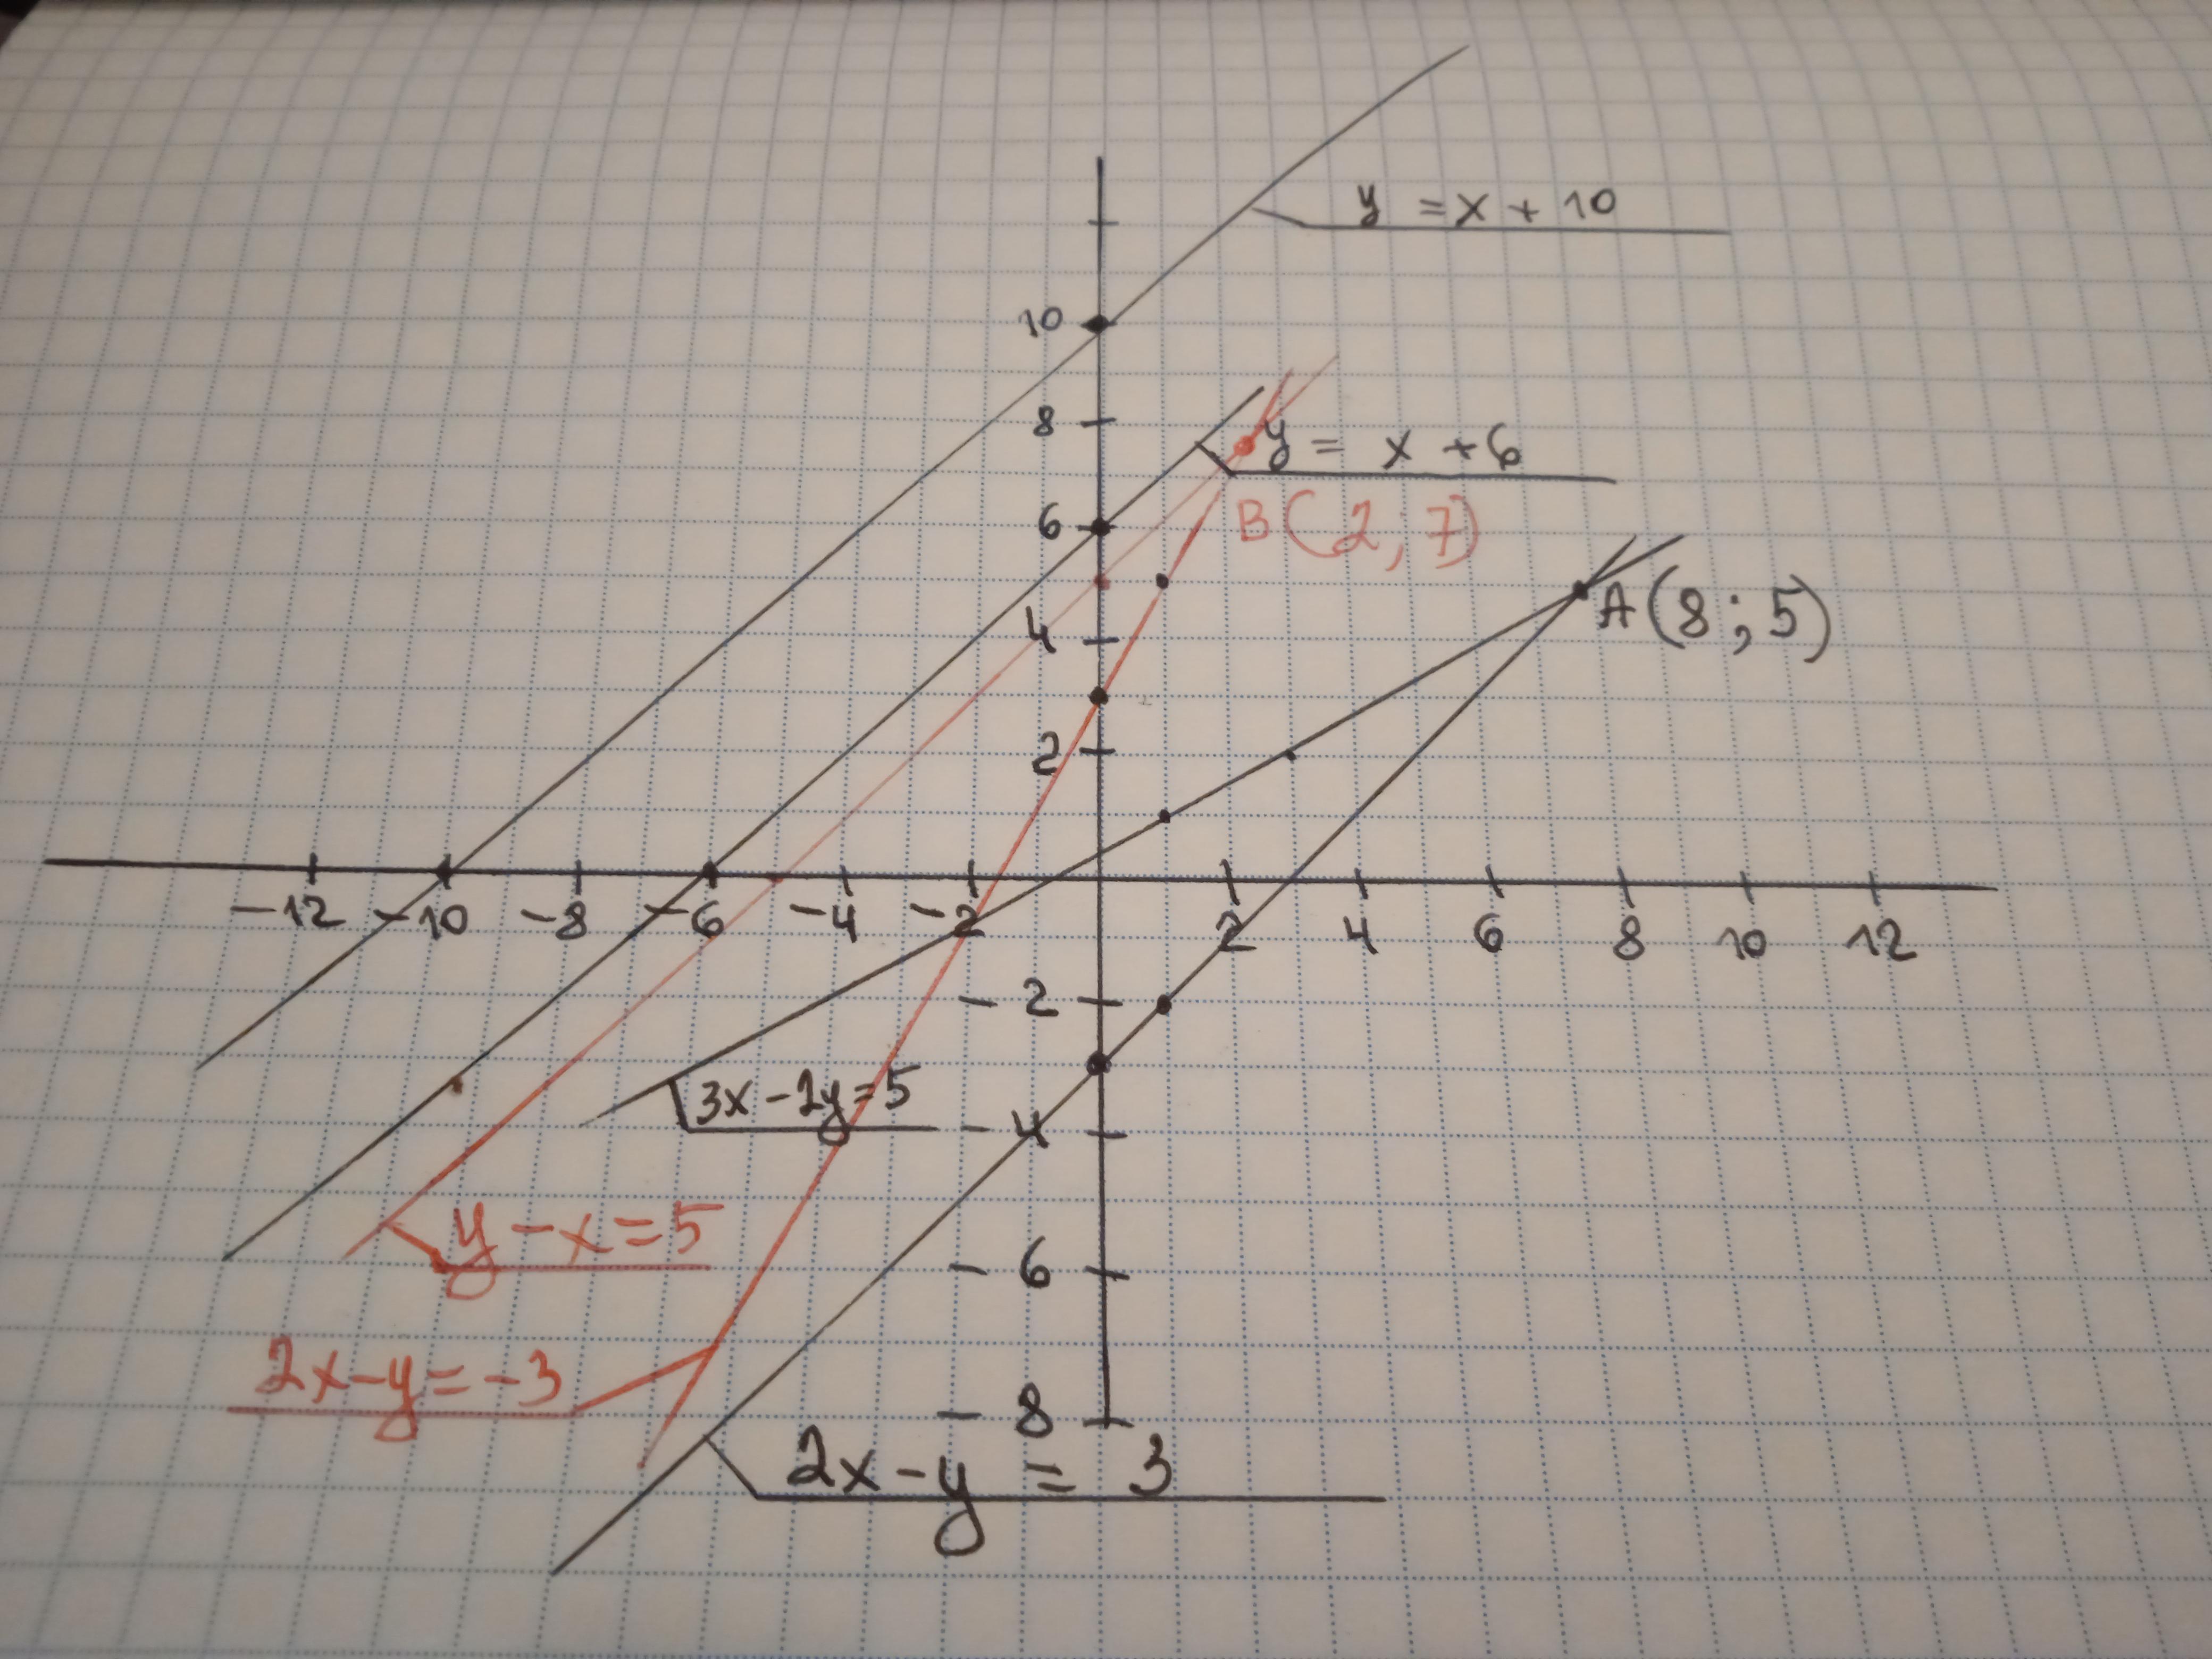 y = x + 10
10
8
y = x + 6
6
B(2; 7)
A(8; 5)
4
2
-12 -10 -8 -6 -4 -2 2 4 6 8 10 12
-2
3x - 2y = 5
-4
y - x = 5
-6
2x - y = -3
-8
2x - y = 3